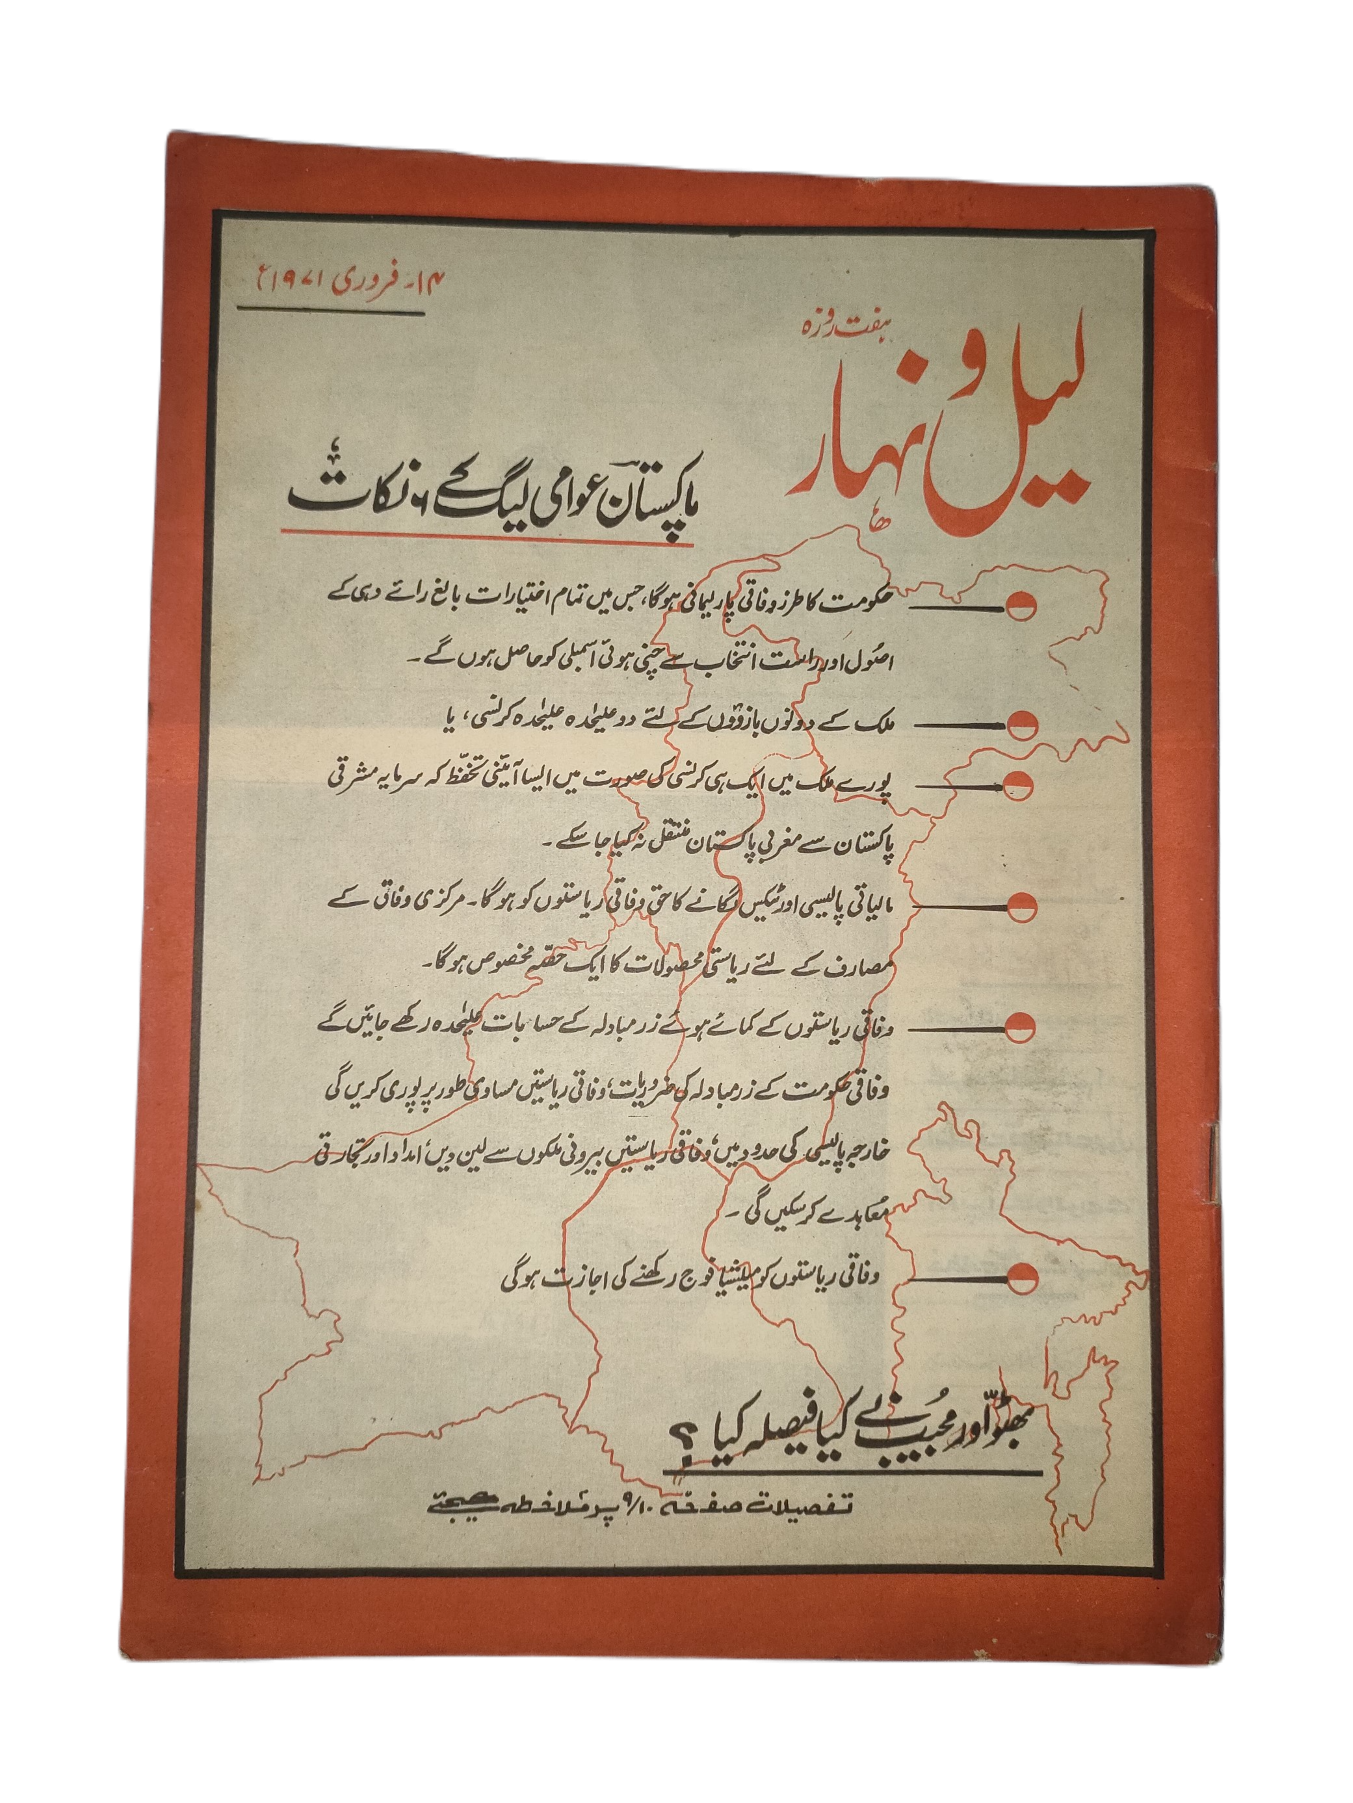 ۱۴۔ فروری ۱۹۷۱ء
ہفت روزہ
لیل و نہار
پاکستان عوامی لیگ کے ۶ نکات
حکومت کا طرز وفاقی پارلیمانی ہوگا، جس میں تمام اختیارات بالغ رائے دہی کے
اصول اور راست انتخاب سے چنی ہوئی اسمبلی کو حاصل ہوں گے۔
ملک کے دونوں بازوؤں کے لئے دو علیحٰدہ علیحٰدہ کرنسی، یا
پورے ملک میں ایک ہی کرنسی کی صورت میں ایسا آئینی تحفّظ کہ سرمایہ مشرقی
پاکستان سے مغربی پاکستان منتقل نہ کیا جا سکے۔
مالیاتی پالیسی اور ٹیکس لگانے کا حق وفاقی ریاستوں کو ہوگا۔ مرکزی وفاق کے
مصارف کے لئے ریاستی محصولات کا ایک حصّہ مخصوص ہوگا۔
وفاقی ریاستوں کے کمائے ہوئے زرمبادلہ کے حسابات علیحٰدہ رکھے جائیں گے
وفاقی حکومت کے زرمبادلہ کی ضروریات، وفاقی ریاستیں مساوی طور پر پوری کریں گی
خارجہ پالیسی کی حدود میں، وفاقی ریاستیں بیرونی ملکوں سے لین دین، امداد اور تجارتی
معاہدے کر سکیں گی۔
وفاقی ریاستوں کو میلیشیا فوج رکھنے کی اجازت ہوگی
بھٹو اور مجیب نے کیا فیصلہ کیا؟
تفصیلات صفحہ ۹/۱۰ پر ملاخطہ کیجئے